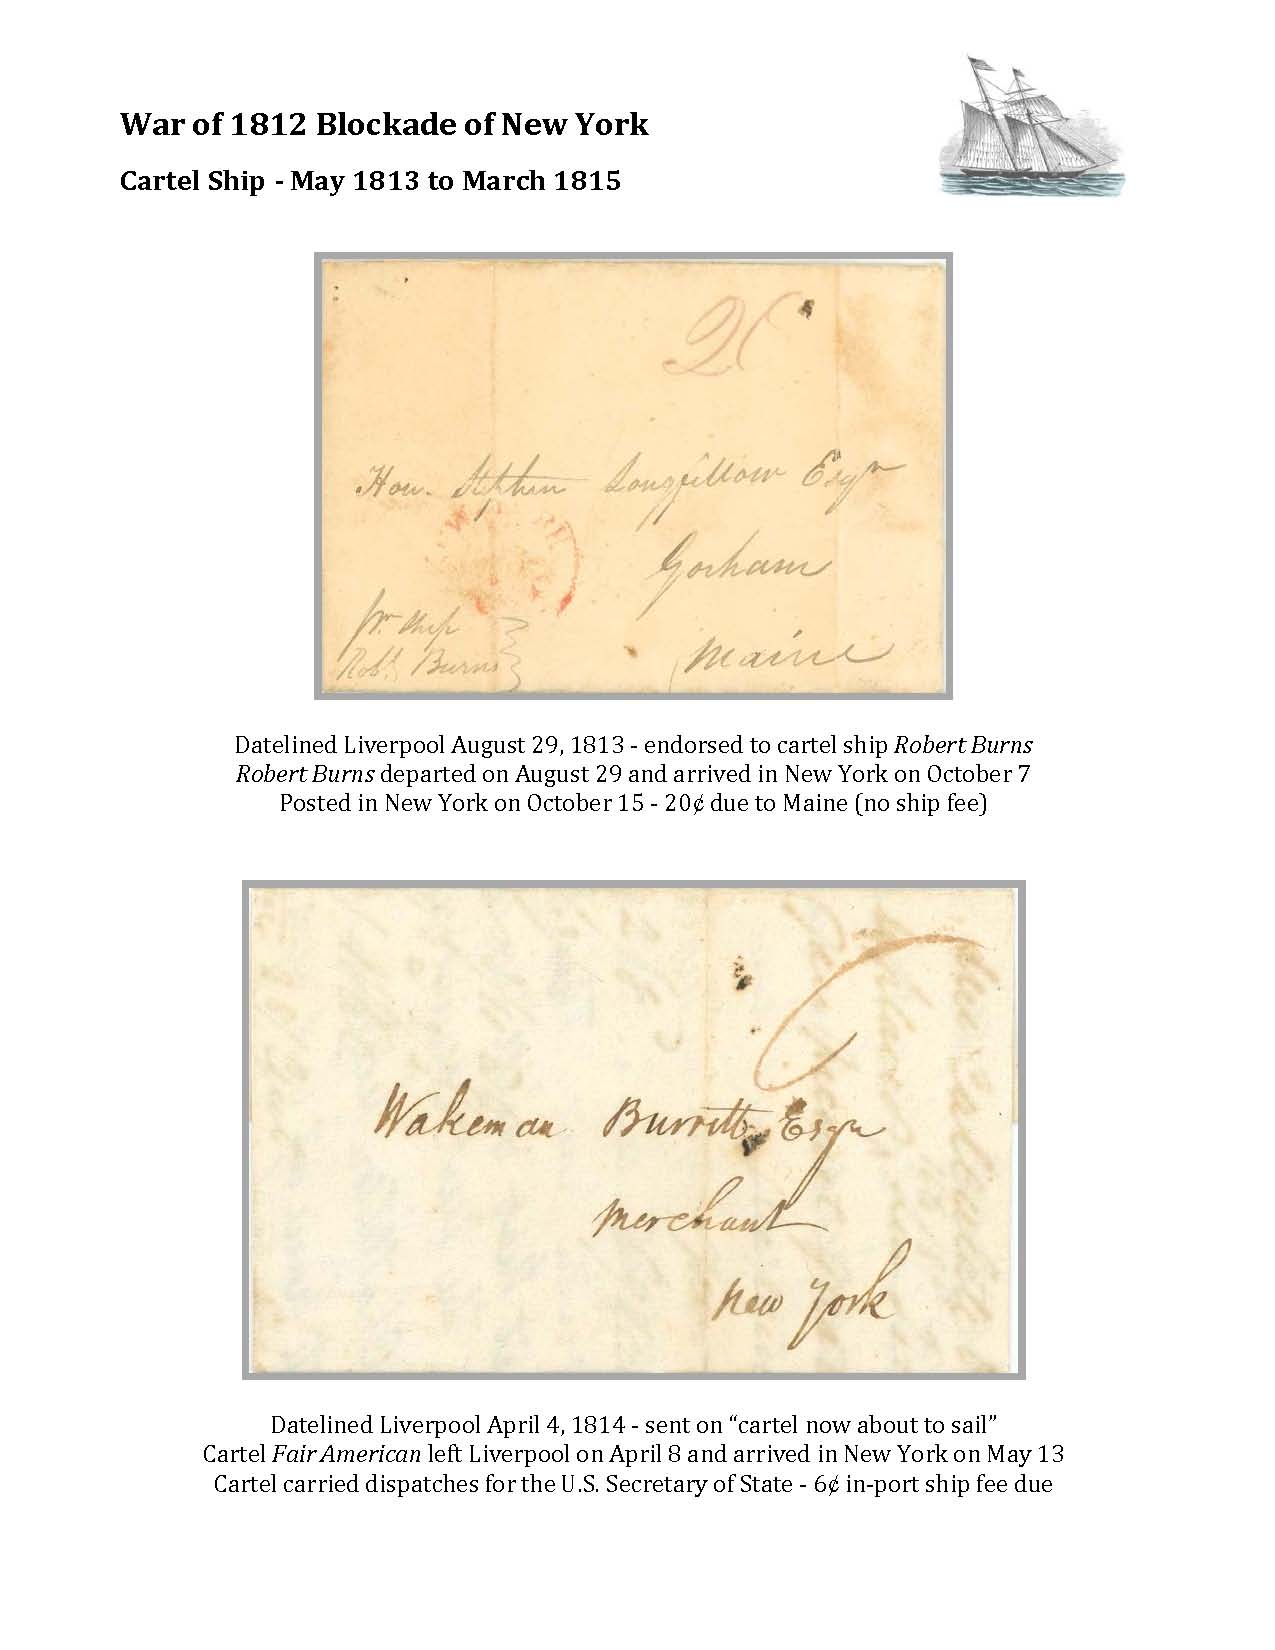 War of 1812 Blockade of New York
Cartel Ship - May 1813 to March 1815
20
Hon. Stephen Longfellow Esqr
Gorham
Maine
pr. ship
Robt. Burns
Datelined Liverpool August 29, 1813 - endorsed to cartel ship Robert Burns
Robert Burns departed on August 29 and arrived in New York on October 7
Posted in New York on October 15 - 20¢ due to Maine (no ship fee)
6
Wakeman Burritt Esqr
Merchant
New York
Datelined Liverpool April 4, 1814 - sent on “cartel now about to sail”
Cartel Fair American left Liverpool on April 8 and arrived in New York on May 13
Cartel carried dispatches for the U.S. Secretary of State - 6¢ in-port ship fee due